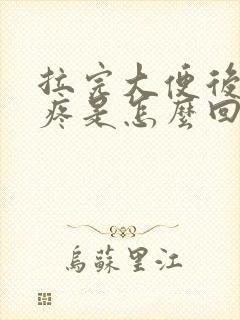 拉完大便後
疼是怎麼回
烏蘇里江